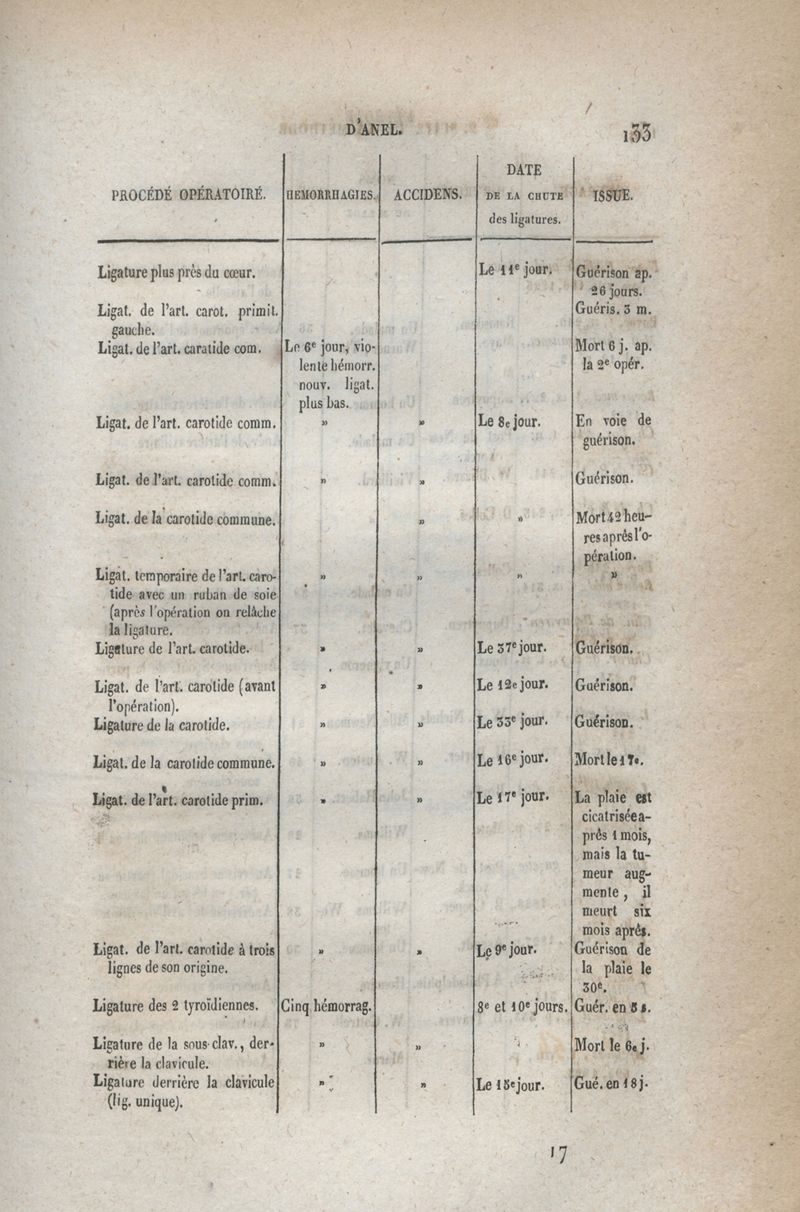 D'ANEL.
133
PROCÉDÉ OPÉRATOIRE.
HEMORRHAGIES.
ACCIDENS.
DATE
DE LA CHUTE
des ligatures.
ISSUE.
Ligature plus près du cœur.
Le 11e jour.
Guérison ap.
26 jours.
Ligat. de l'art. carot. primit.
gauche.
Guéris. 3 m.
Ligat. de l'art. caratide com.
Le 6e jour, vio-
lente hémorr.
nouv. ligat.
plus bas.
Mort 6 j. ap.
la 2e opér.
Ligat. de l'art. carotide comm.
»
»
Le 8e jour.
En voie de
guérison.
Ligat. de l'art. carotide comm.
»
»
Guérison.
Ligat. de la carotide commune.
»
»
Mort 42 heu-
res après l'o-
pération.
Ligat. temporaire de l'art. caro-
tide avec un ruban de soie
(après l'opération on relâche
la ligature.
»
»
»
»
Ligature de l'art. carotide.
»
»
Le 37e jour.
Guérison.
Ligat. de l'art. carotide (avant
l'opération).
»
»
Le 12e jour.
Guérison.
Ligature de la carotide.
»
»
Le 33e jour.
Guérison.
Ligat. de la carotide commune.
»
»
Le 16e jour.
Mort le 17e.
Ligat. de l'art. carotide prim.
»
»
Le 17e jour.
La plaie est
cicatrisée a-
près 1 mois,
mais la tu-
meur aug-
mente, il
meurt six
mois après.
Ligat. de l'art. carotide à trois
lignes de son origine.
»
»
Le 9e jour.
Guérison de
la plaie le
30e.
Ligature des 2 tyroïdiennes.
Cinq hémorrag.
8e et 10e jours.
Guér. en 5 s.
Ligature de la sous-clav., der-
rière la clavicule.
»
»
Mort le 6e j.
Ligature derrière la clavicule
(lig. unique).
»
»
Le 15e jour.
Gué. en 18 j.
17